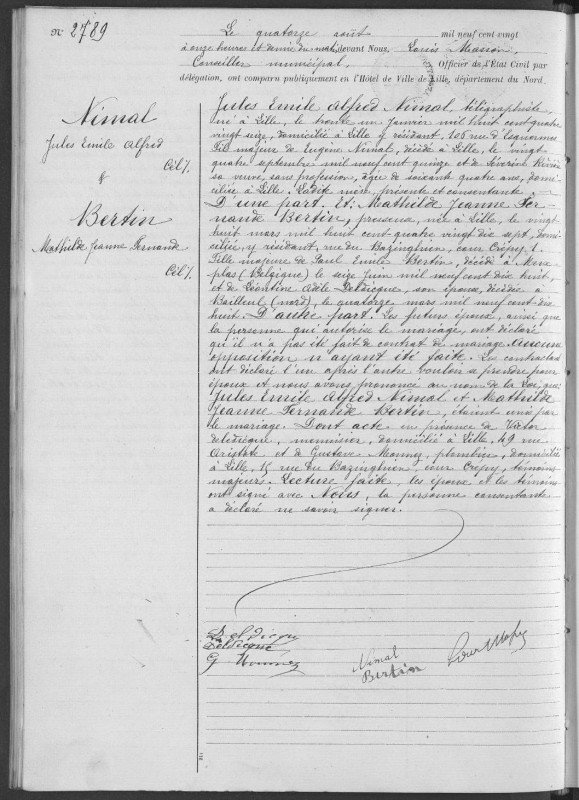 N° 2789
Le quatorze août mil neuf cent vingt
à onze heures et demie du matin, devant Nous, Louis Masson,
Conseiller municipal, Officier de l'État Civil par
délégation, ont comparu publiquement en l'Hôtel de Ville de Lille, département du Nord,
Nimal
Jules Emile Alfred
Cél.
&
Bertin
Mathilde Jeanne Fernande
Cél.
Jules Emile Alfred Nimal, télégraphiste,
né à Lille, le trente un Janvier mil huit cent quatre
vingt seize, domicilié à Lille y résidant, 106 rue d'Esquermes
Fils majeur de Eugène Nimal, décédé à Lille, le vingt
quatre septembre mil neuf cent quinze et de Séverine
sa veuve, sans profession, âgée de soixante quatre ans, domi-
ciliée à Lille. Ladite mère, présente et consentante
D'une part. Et: Mathilde Jeanne Fer-
nande Bertin, née à Lille, le vingt
huit mars mil huit cent quatre vingt dix sept, domi-
ciliée, y résidant, rue du Bazinghien, cour Crépy, 1.
Fille majeure de Paul Emile Bertin, décédé à Merx-
plas (Belgique) le seize Juin mil neuf cent dix huit,
et de Léontine Adèle Deldicque, son épouse, décédée à
Bailleul (nord), le quatorze mars mil neuf cent dix
huit. D'autre part. Les futurs époux, ainsi que
la personne qui autorise le mariage, ont déclaré
qu'il n'a pas été fait de contrat de mariage. Aucune
opposition n'ayant été faite. Les contractants
ont déclaré l'un après l'autre vouloir se prendre pour
époux et nous avons prononcé au nom de la Loi, que:
Jules Emile Alfred Nimal et Mathilde
Jeanne Fernande Bertin, étaient unis par
le mariage. Dont acte en présence de Victor
deldicque, menuisier, domicilié à Lille, 49 rue
Aristote et de Gustave Monnez, plombier, domicilié
à Lille, 15 rue du Bazinghien, cour Crépy, témoins
majeurs. Lecture faite, les époux et les témoins
ont signé avec Nous, la personne consentante
a déclaré ne savoir signer.
Deldicque
G Monnez
Nimal
Bertin